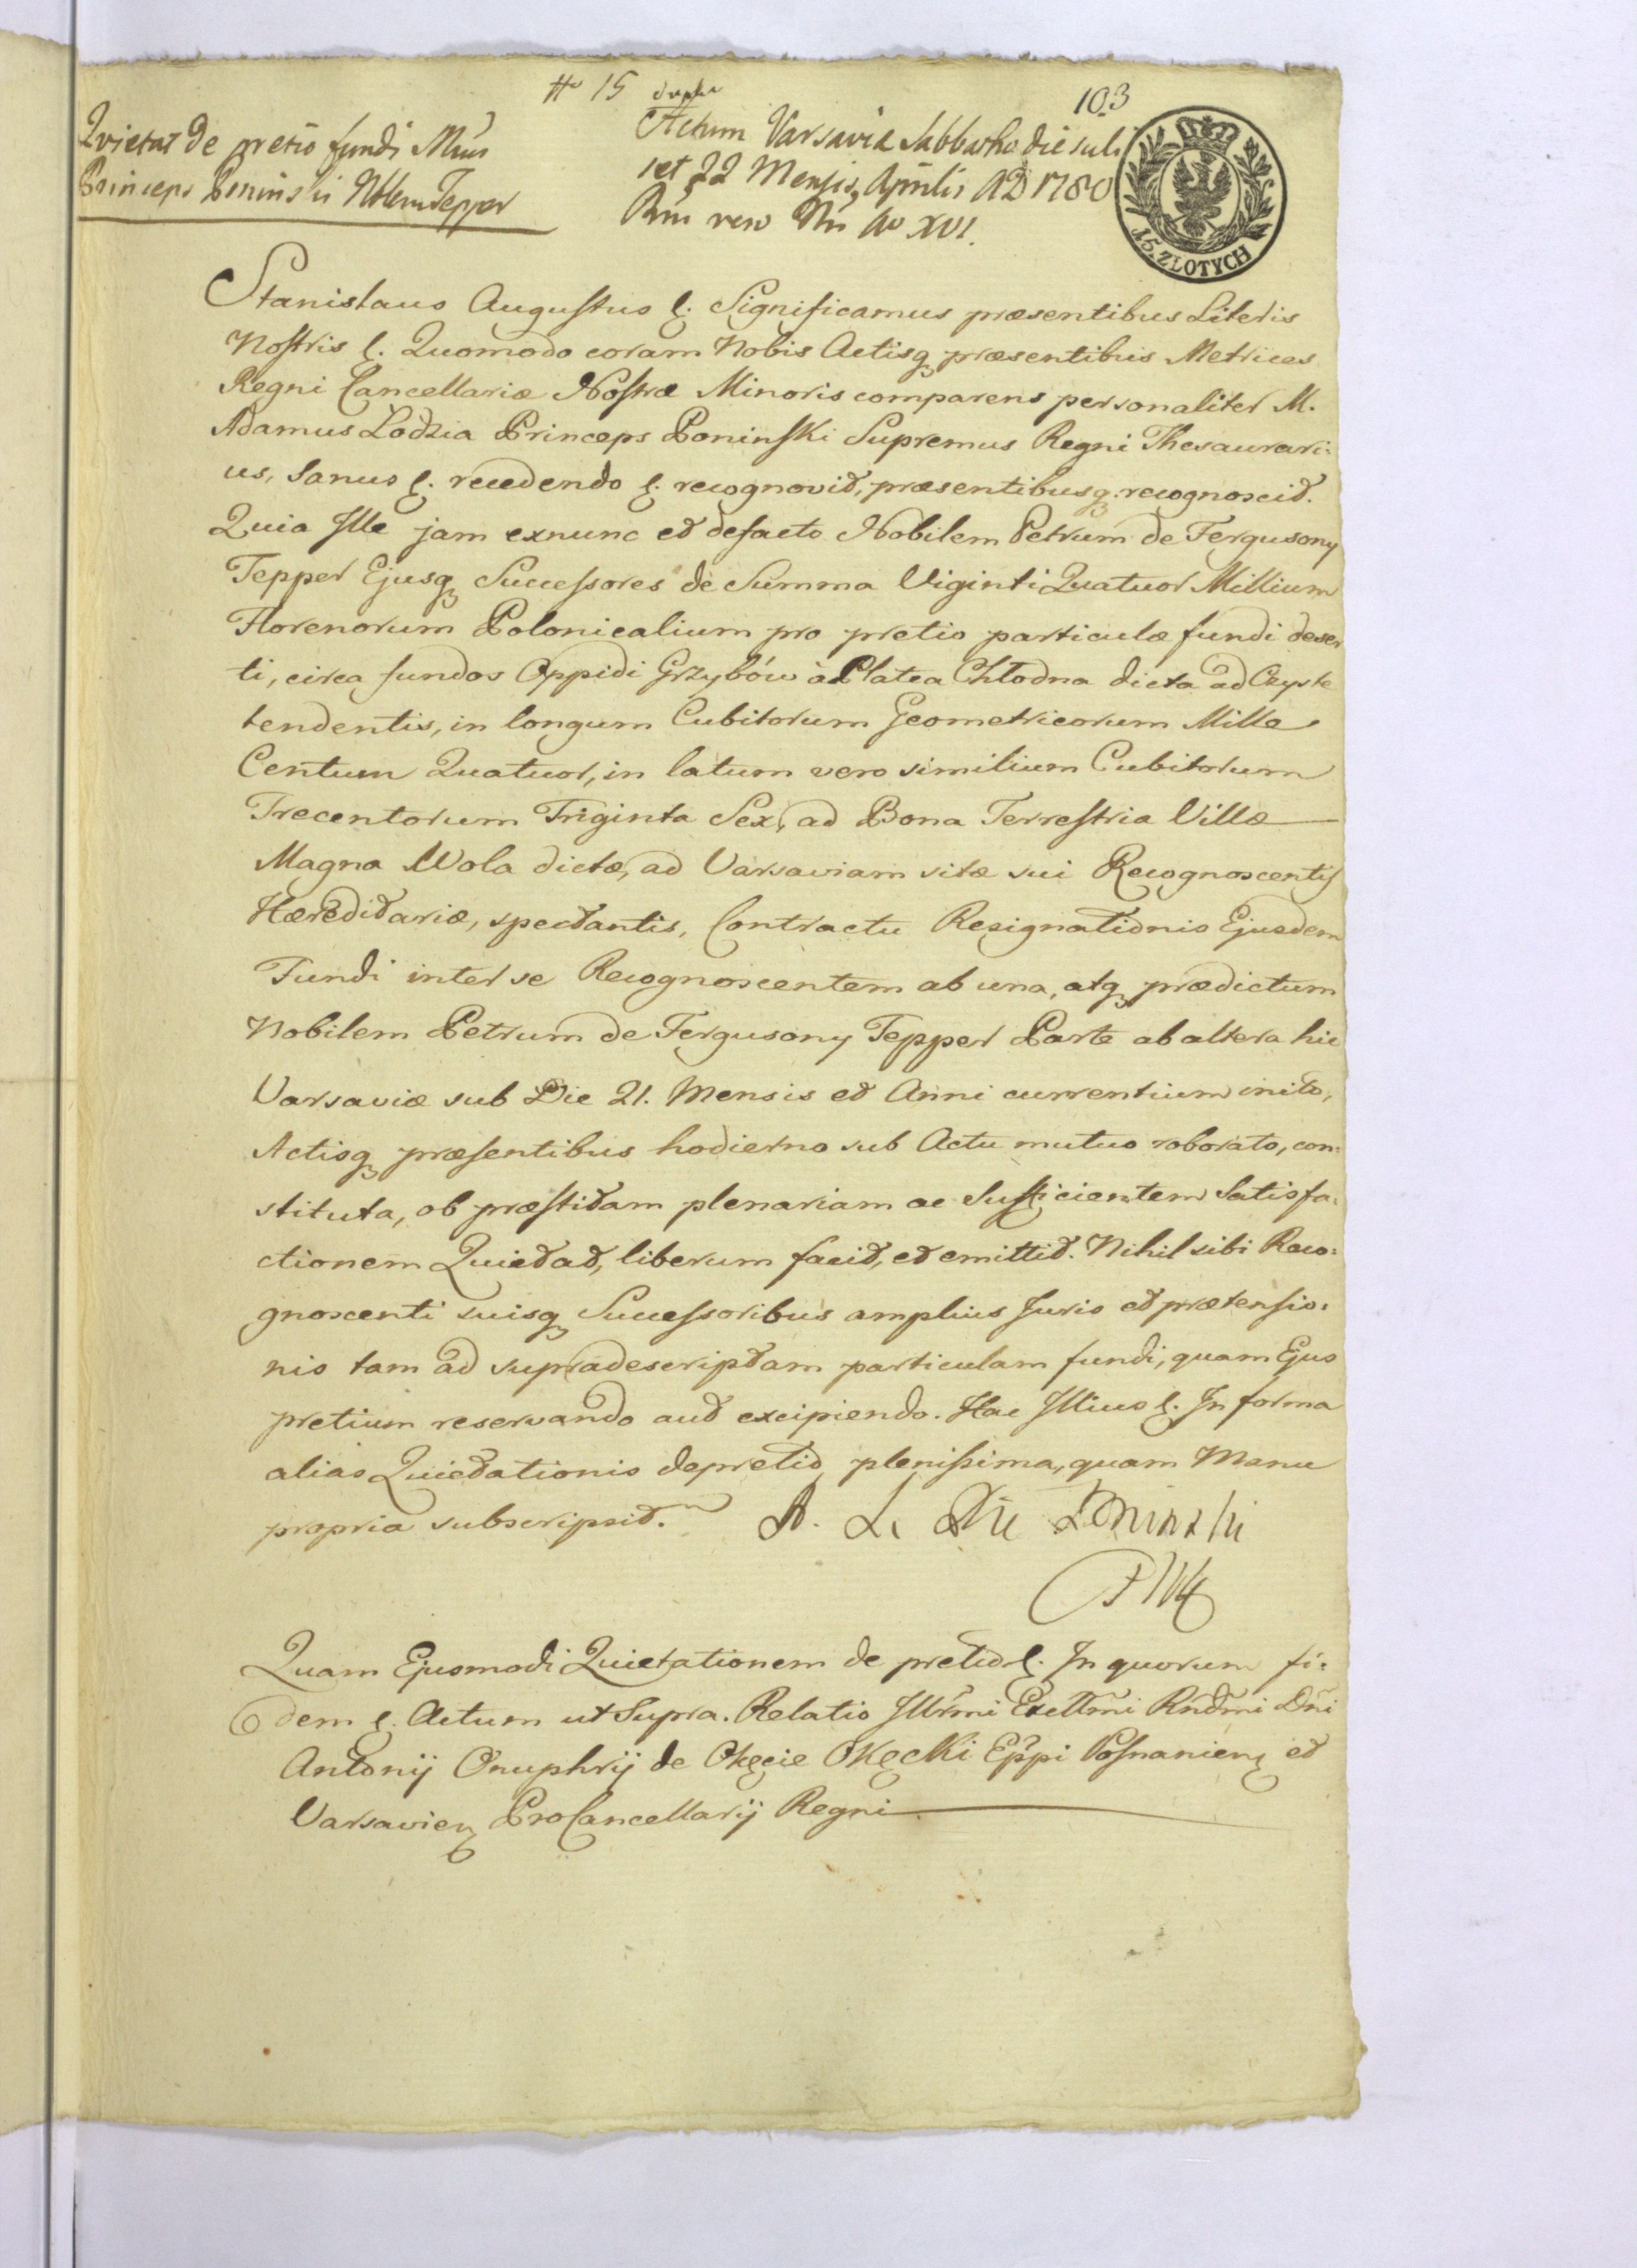 № 15 dupla
103
Quietat de pretio fundi Mūs
Princeps Poninski Nblem Tepper
Actum Varsaviæ Sabbatho die scili
cet 22 Mensis Aprilis AD 1780
Rñi vero Nri Ao XVI.
15. ZLOTYCH
Stanislaus Augustus &. Significamus præsentibus Literis
Nostris &. Quomodo coram Nobis Actisq præsentibus Metrices
Regni Cancellariæ Nostræ Minoris comparens personaliter M.
Adamus Lodzia Princeps Poninski Supremus Regni Thesaurari:
us, Sanus &. recedendo &. recognovit, præsentibusq: recognoscit.
Quia Ille jam exnunc et defacto Nobilem Petrum de Fergusony
Tepper Ejusq Successores de Summa Viginti Quatuor Millium
Florenorum Polonicalium pro pretio particulæ fundi deser
ti, circa fundos Oppidi Grzybów à Platea Chłodna dicta ad Czyste
tendentis, in longum Cubitorum Geometricorum Mille
Centum Quatuor, in latum vero similium Cubitorum
Trecentorum Triginta Sex, ad Bona Terrestria Villæ
Magna Wola dictæ, ad Varsaviam sitæ sui Recognoscentis
Hæreditariæ, spectantis, Contractu Resignationis Ejusdem
Fundi inter se Recognoscentem ab una, atq prædictum
Nobilem Petrum de Fergusony Tepper Parte ab altera hic
Varsaviæ sub Die 21. Mensis et Anni currentium inito,
Actisq præsentibus hodierno sub Actu mutuo roborato, con:
stituta, ob præstitam plenariam ac Sufficientem Satisfa:
ctionem Quietat, liberum facit, et emittit. Nihil sibi Reco:
gnoscenti suisq Successoribus amplius Juris et prætensio:
nis tam ad supradescriptam particulam fundi, quam Ejus
pretium reservando aut excipiendo. Hac Illius &. In forma
alias Quietationis depretio plenissima, quam Manu
propria subscripsit. A. L. Poninski
Quam Ejusmodi Quietationem de pretio &. In quorum fi:
dem &. Actum ut Supra. Relatio Illrmi Excllmi Rndmi Dñi
Antonij Onuphrij de Okęcie Okęcki Eppi Posnanien et
Varsavien ProCancellarij Regni